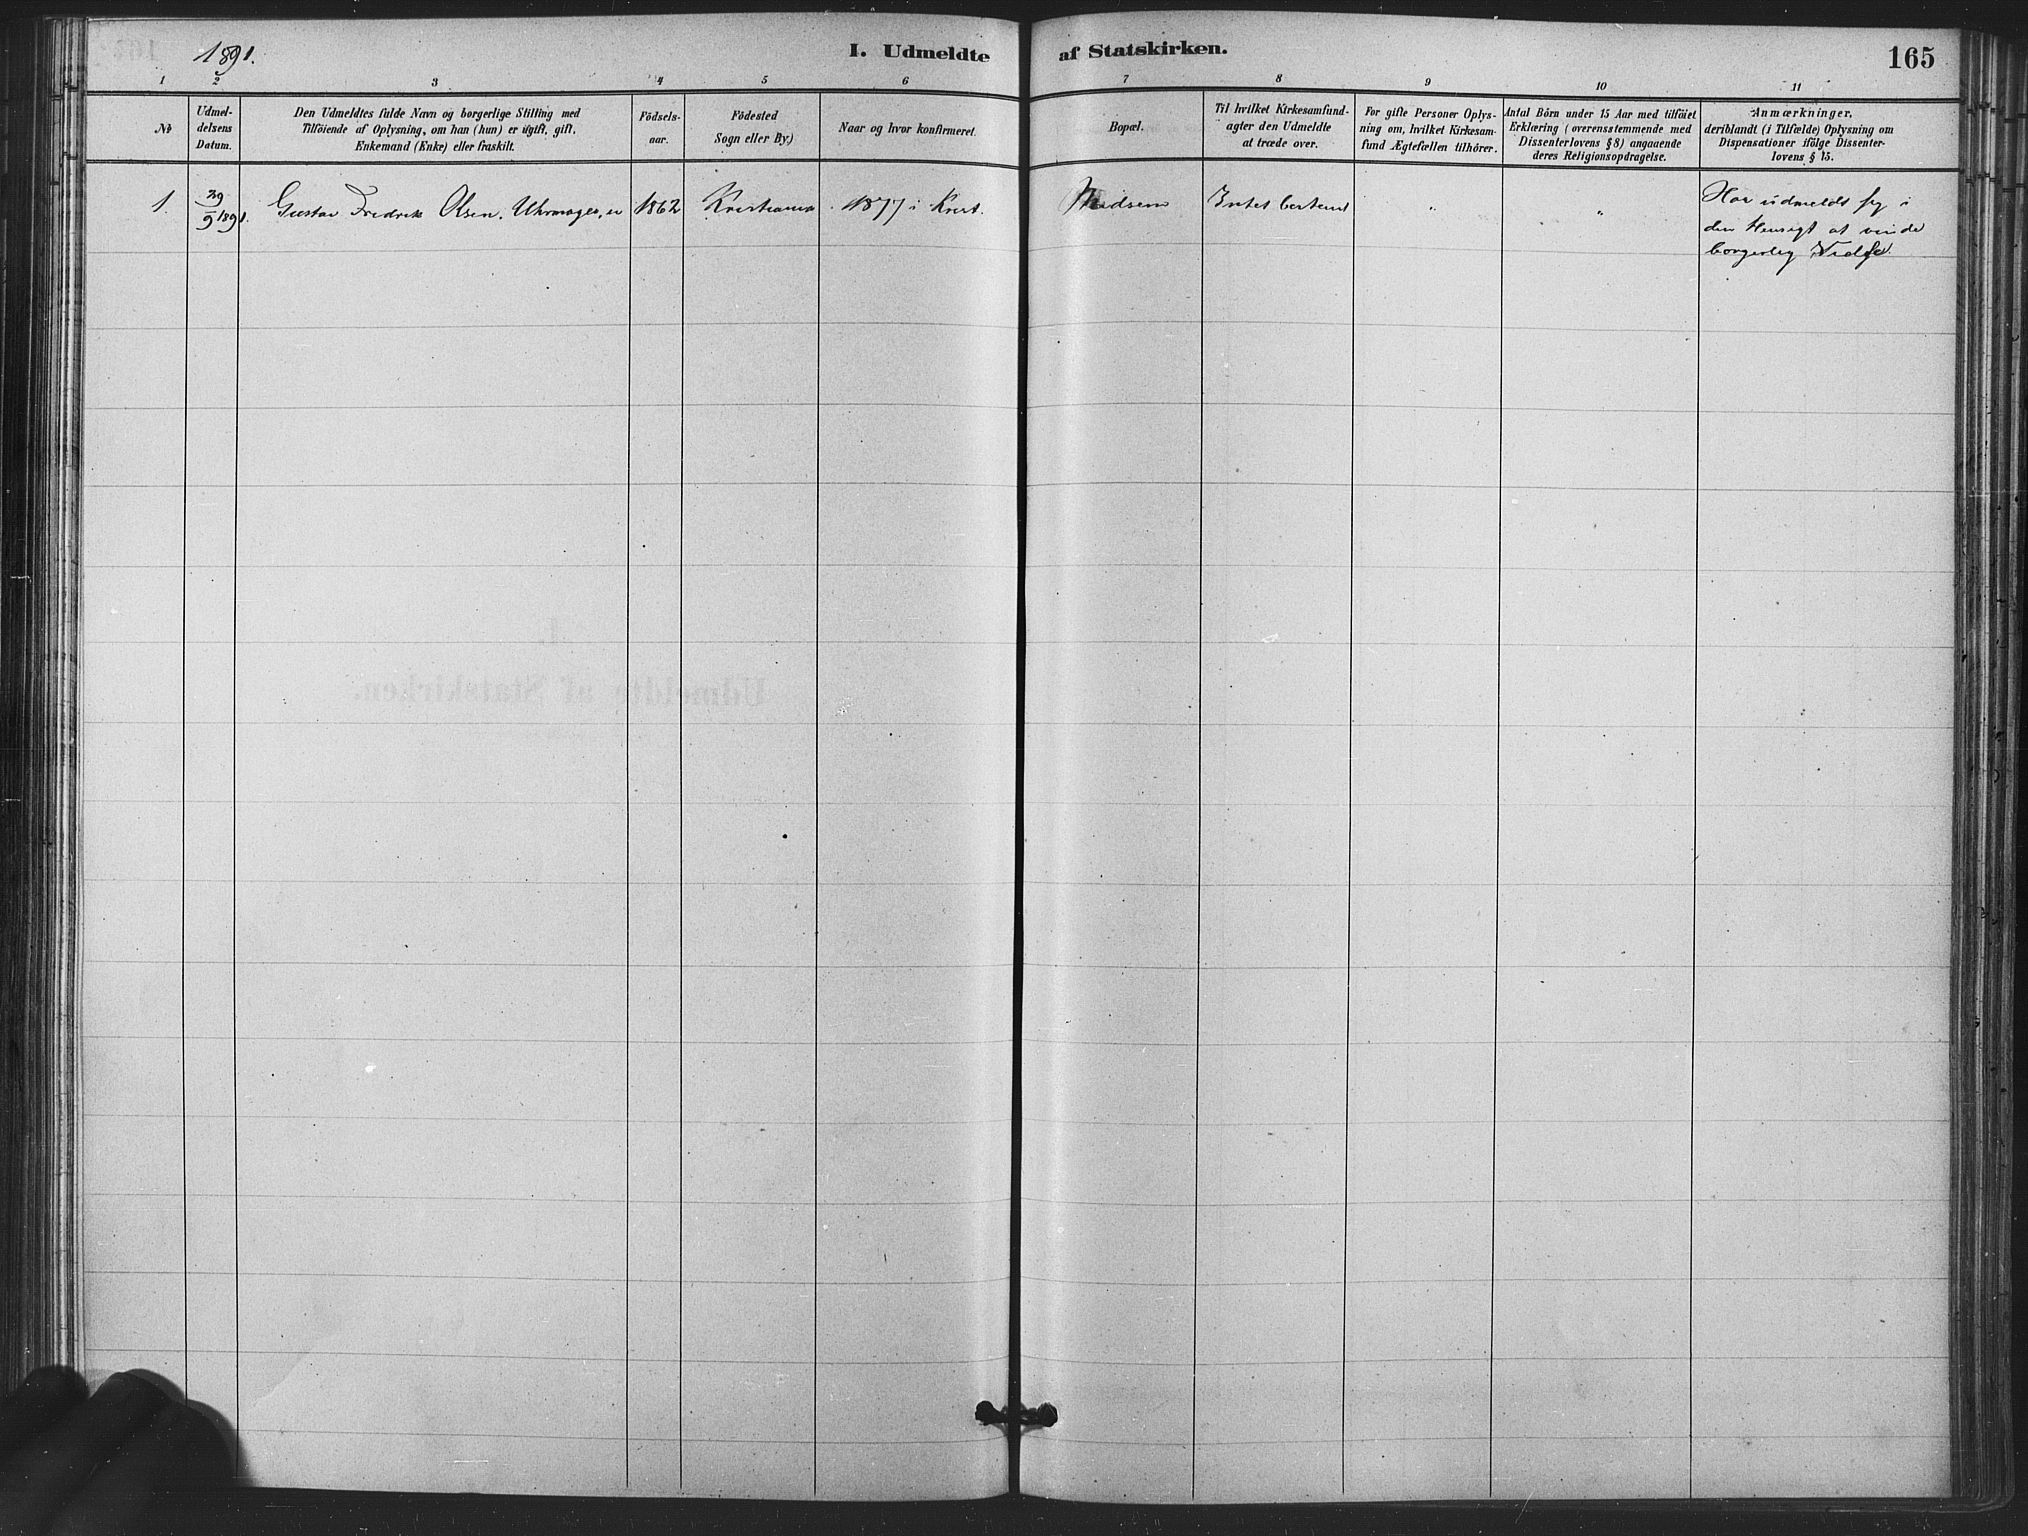 1891.
I. Udmeldte af Statskirken.
165
1 2 3 4 5 6 7 8 9 10 11
No
Udmel-
delsens
Datum.
Den Udmeldtes fulde Navn og borgerlige Stilling med
Tilföiende af Oplysning, om han (hun) er ugift, gift,
Enkemand (Enke) eller fraskilt.
Födsels-
aar.
Födested
Sogn eller By.)
Naar og hvor konfirmeret.
Bopæl.
Til hvilket Kirkesamfund-
agter den Udmeldte
at træde over.
For gifte Personer Oplys-
ning om, hvilket Kirkesam-
fund Ægtefællen tilhörer.
Antal Börn under 15 Aar med tilföiet
Erklæring (overensstemmende med
Dissenterlovens § 8) angaaende
deres Religionsopdragelse.
Anmærkninger,
deriblandt (i Tilfælde) Oplysning om
Dispensationer ifölge Dissenter-
lovens § 15.
1. 29/9 1891. Gustav Fredrik Olsen, Uhrmager, 1862 Kristiania 1877 i Krist. Intet bestemt " "
Har udmeldt sig i
den Hensigt at
borgerlig